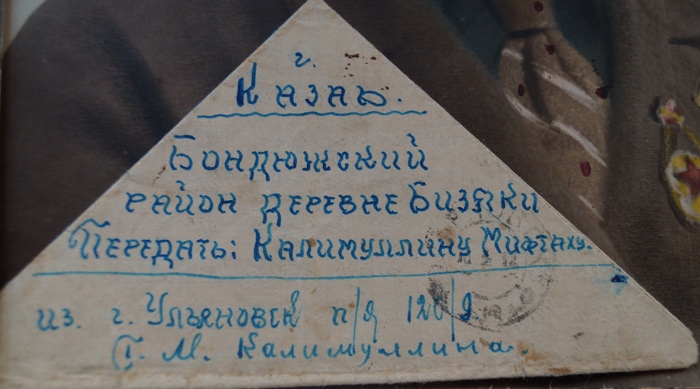 г.
Казаь.
Бондюжский
район деревне Бизяки
Передать: Калимуллину Мифтаху.
из. г. Ульяновск п/я 120/
Г. М. Калимуллина.